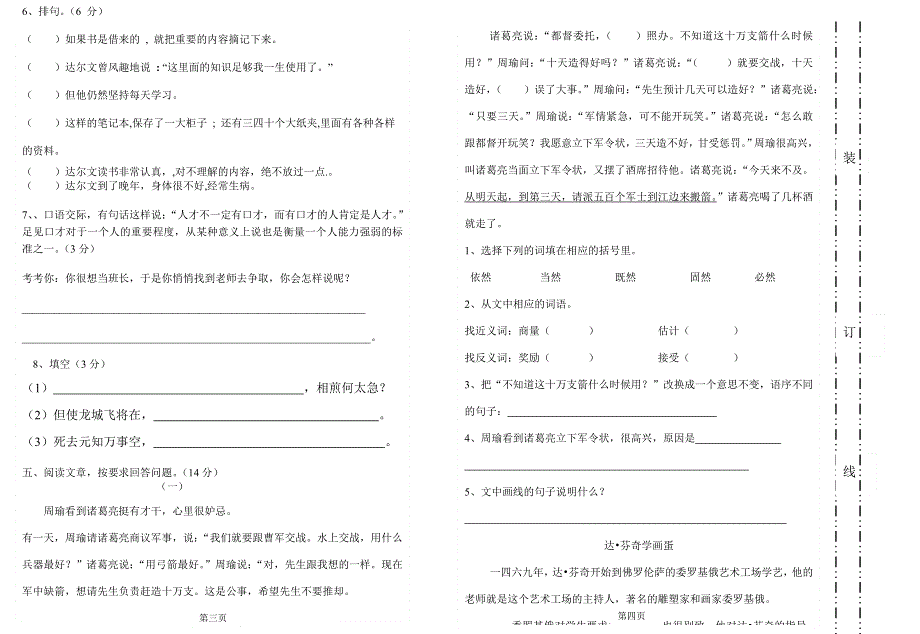 6、排句。（6 分）
（ ）如果书是借来的 , 就把重要的内容摘记下来。
（ ）达尔文曾风趣地说 :“这里面的知识足够我一生使用了。”
（ ）但他仍然坚持每天学习。
（ ）这样的笔记本,保存了一大柜子 ; 还有三四十个大纸夹,里面有各种各样
的资料。
（ ）达尔文读书非常认真，,对不理解的内容，绝不放过一点.。
（ ）达尔文到了晚年，身体很不好,经常生病。
7、、口语交际，有句话这样说：“人才不一定有口才，而有口才的人肯定是人才。”
足见口才对于一个人的重要程度，从某种意义上说也是衡量一个人能力强弱的标
准之一。（3 分）
考考你：你很想当班长，于是你悄悄找到老师去争取，你会怎样说呢？
。
8、填空（3 分）
（1），相煎何太急？
（2）但使龙城飞将在，。
（3）死去元知万事空，。
五、阅读文章，按要求回答问题。（14 分）
（一）
周瑜看到诸葛亮挺有才干，心里很妒忌。
有一天，周瑜请诸葛亮商议军事，说：“我们就要跟曹军交战。水上交战，用什么
兵器最好？”诸葛亮说：“用弓箭最好。”周瑜说：“对，先生跟我想的一样。现在
军中缺箭，想请先生负责赶造十万支。这是公事，希望先生不要推却。
第三页
诸葛亮说：“都督委托，（ ）照办。不知道这十万支箭什么时候
用？”周瑜问：“十天造得好吗？”诸葛亮说：“（ ）就要交战，十天
造好，（ ）误了大事。”周瑜问：“先生预计几天可以造好？”诸葛亮说：
“只要三天。”周瑜说：“军情紧急，可不能开玩笑。”诸葛亮说：“怎么敢
跟都督开玩笑？我愿意立下军令状，三天造不好，甘受惩罚。”周瑜很高兴，
叫诸葛亮当面立下军令状，又摆了酒席招待他。诸葛亮说：“今天来不及。
从明天起，到第三天，请派五百个军士到江边来搬箭。”诸葛亮喝了几杯酒
就走了。
1、选择下列的词填在相应的括号里。
依然 当然 既然 固然 必然
2、从文中相应的词语。
找近义词：商量（ ） 估计（ ）
找反义词：奖励（ ） 接受（ ）
3、把“不知道这十万支箭什么时候用？”改换成一个意思不变，语序不同
的句子：
4、周瑜看到诸葛亮立下军令状，很高兴，原因是
5、文中画线的句子说明什么？
达•芬奇学画蛋
一四六九年，达•芬奇开始到佛罗伦萨的委罗基俄艺术工场学艺，他的
老师就是这个艺术工场的主持人，著名的雕塑家和画家委罗基俄。
第四页
装
订
线